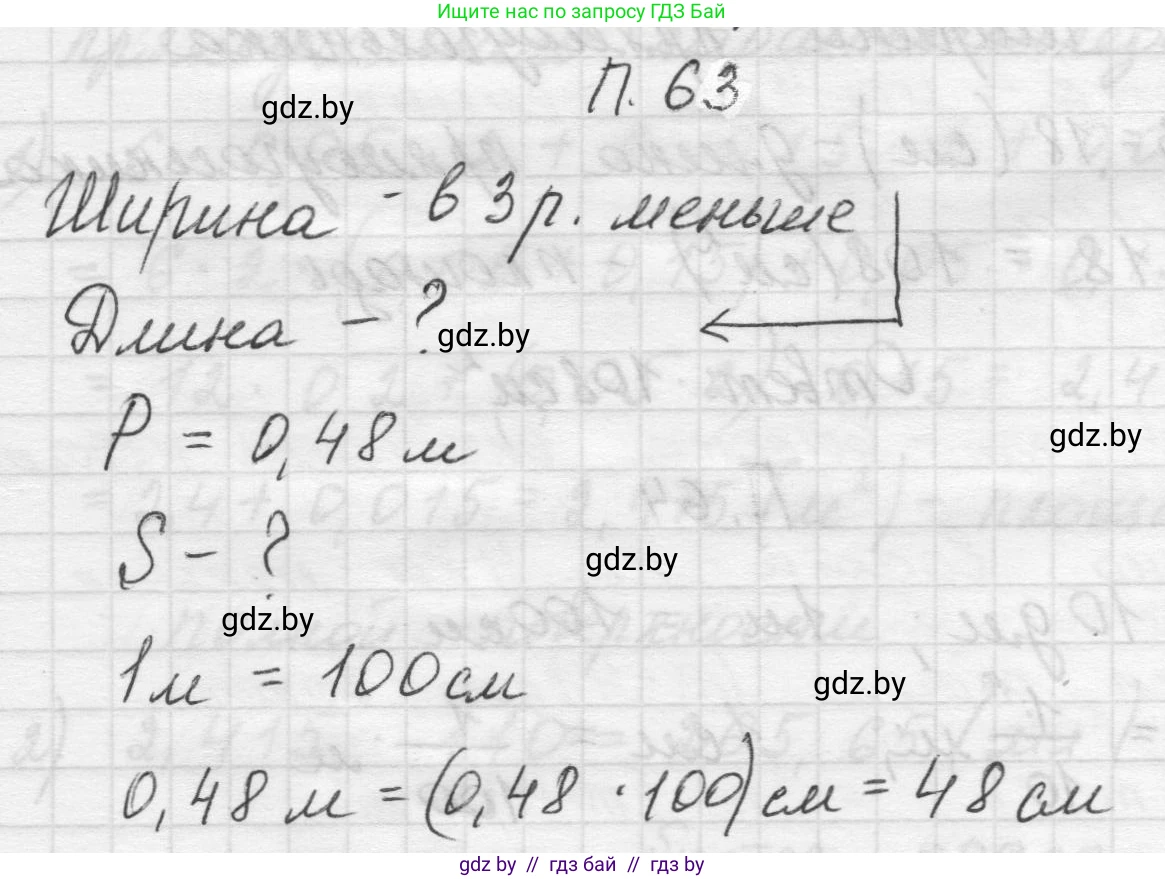 Ищите нас по запросу ГДЗ Бай
П. 63
gdz.by
Ширина - в 3 р. меньше
Длина - ?
gdz.by
P = 0,48 м
gdz.by
S - ?
gdz.by
gdz.by
1 м = 100 см
gdz.by
0,48 м = (0,48 · 100) см = 48 см
gdz.by // гдз бай // гдз by